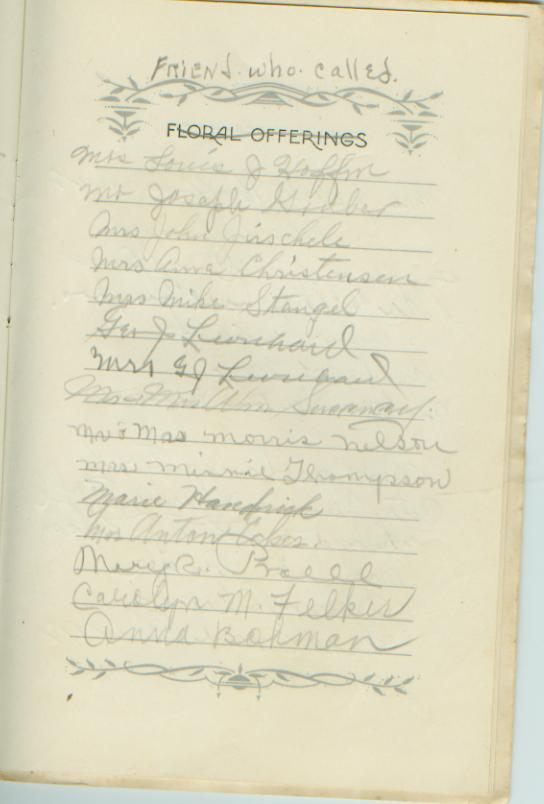 FRIEND. who. called.
FLORAL OFFERINGS
Mrs Louis J
Mr Joseph Gruber
Mrs John Jirschele
Mrs Anna Christensen
Mrs Mike Stangel
Geo J Leonhard
Mrs GJ Leonhard
Mr & Mrs Wm
Mr & Mrs Morris Nelson
Mrs Minnie Thompson
Marie Handrick
Mrs Anton
Mary R.
Carolyn M. Felker
Anna Bohman